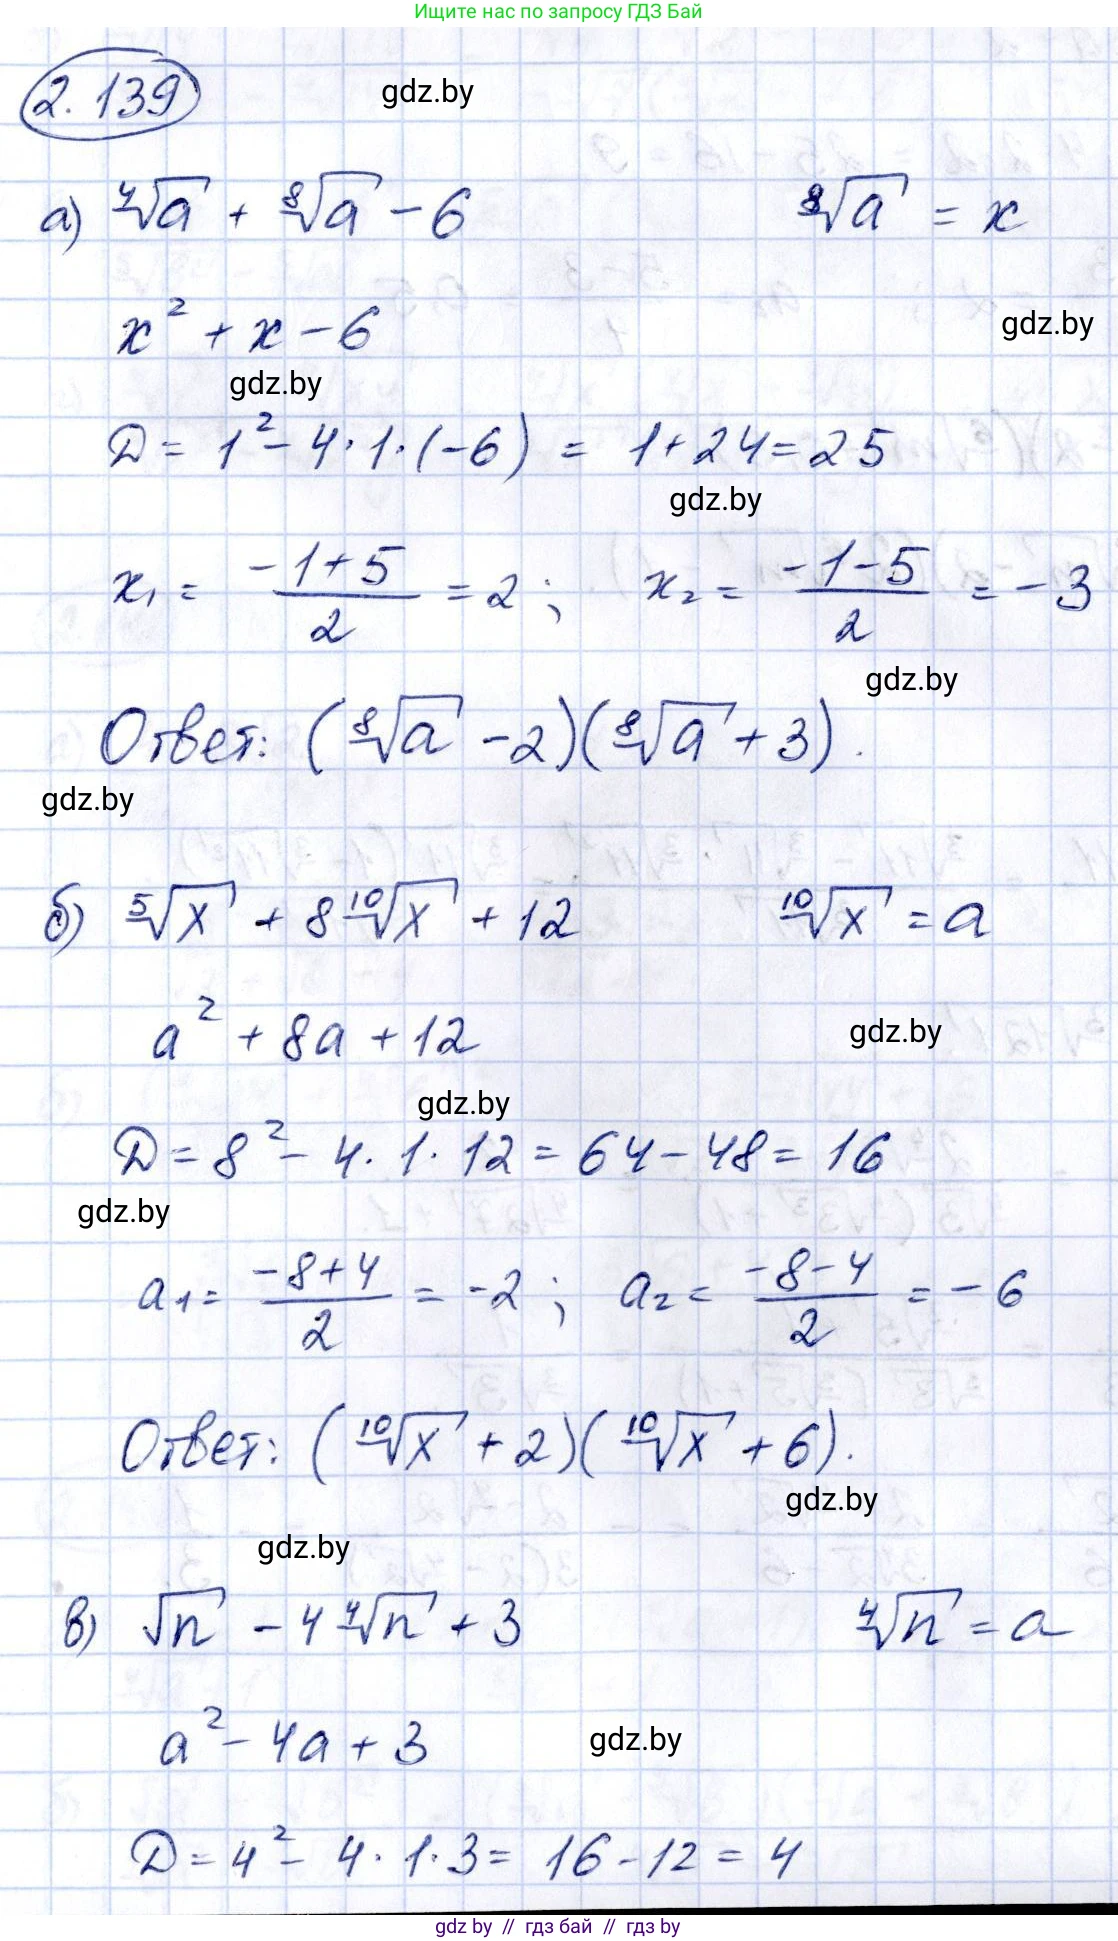 Ищите нас по запросу ГДЗ Бай
2.139
gdz.by
а) ⁴√a + ⁸√a - 6    ⁸√a = x
x² + x - 6
gdz.by
gdz.by
D = 1² - 4·1·(-6) = 1+24=25
gdz.by
x₁ = (-1+5)/2 = 2; x₂ = (-1-5)/2 = -3
gdz.by
Ответ: (⁸√a - 2)(⁸√a + 3).
gdz.by
б) ⁵√x + 8 ¹⁰√x + 12    ¹⁰√x = a
a² + 8a + 12
gdz.by
gdz.by
D = 8² - 4·1·12 = 64 - 48 = 16
gdz.by
a₁ = (-8+4)/2 = -2; a₂ = (-8-4)/2 = -6
Ответ: (¹⁰√x + 2)(¹⁰√x + 6).
gdz.by
gdz.by
в) √n - 4 ⁴√n + 3    ⁴√n = a
a² - 4a + 3
gdz.by
D = 4² - 4·1·3 = 16 - 12 = 4
gdz.by // гдз бай // gdz by